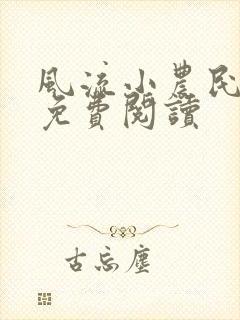 風流小農民
免費閱讀
古忘塵